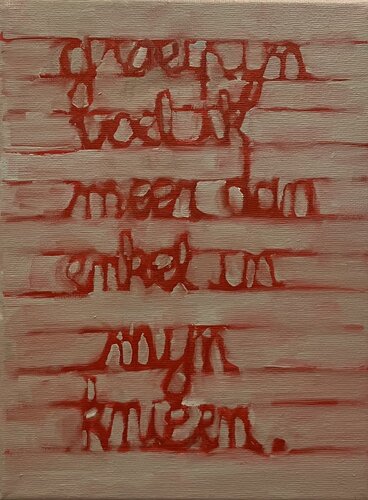 groeipijn
voel ik
meer dan
enkel in
mijn
knieën.